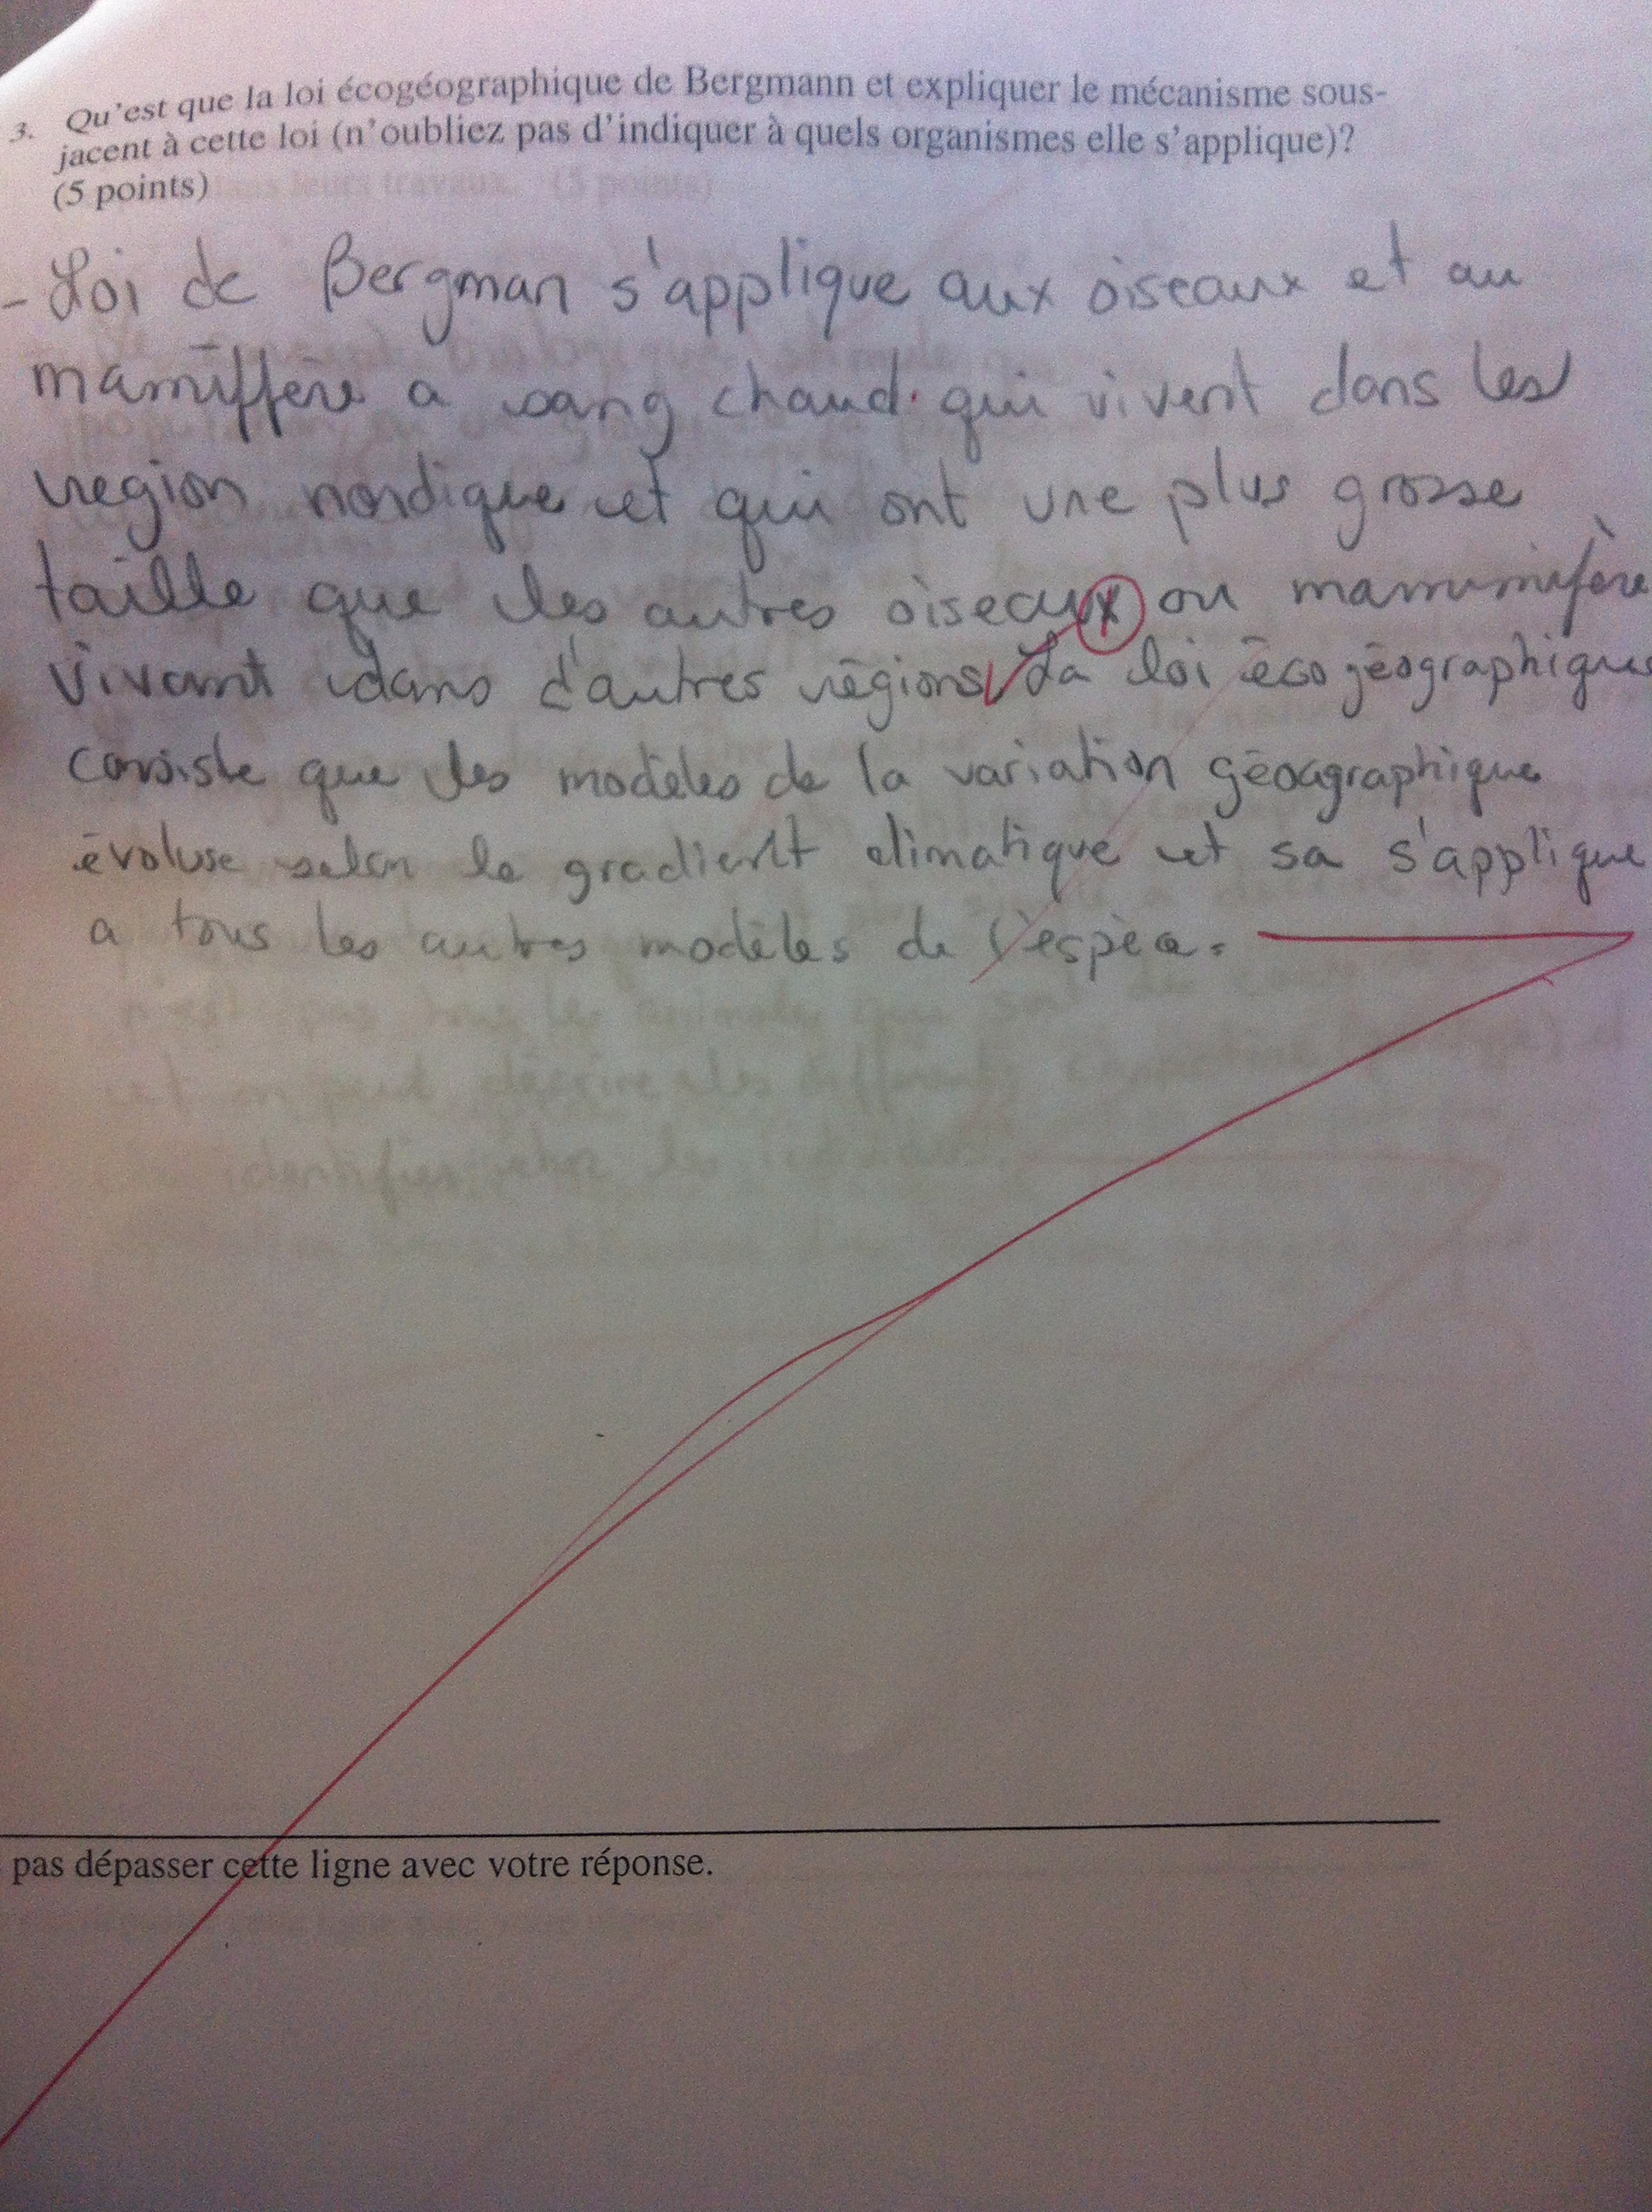 3. Qu'est que la loi écogéographique de Bergmann et expliquer le mécanisme sous-
jacent à cette loi (n'oubliez pas d'indiquer à quels organismes elle s'applique)?
(5 points)
- Loi de Bergman s'applique aux oiseaux et au
mamiffère a sang chaud qui vivent dans les
region nordique et qui ont une plus grosse
taille que les autres oiseaux ou mammifère
vivant dans d'autres régions La loi écogéographique
consiste que les modèles de la variation géographique
évoluse selon le gradient climatique et sa s'applique
a tous les autres modèles de l'espèce.
pas dépasser cette ligne avec votre réponse.